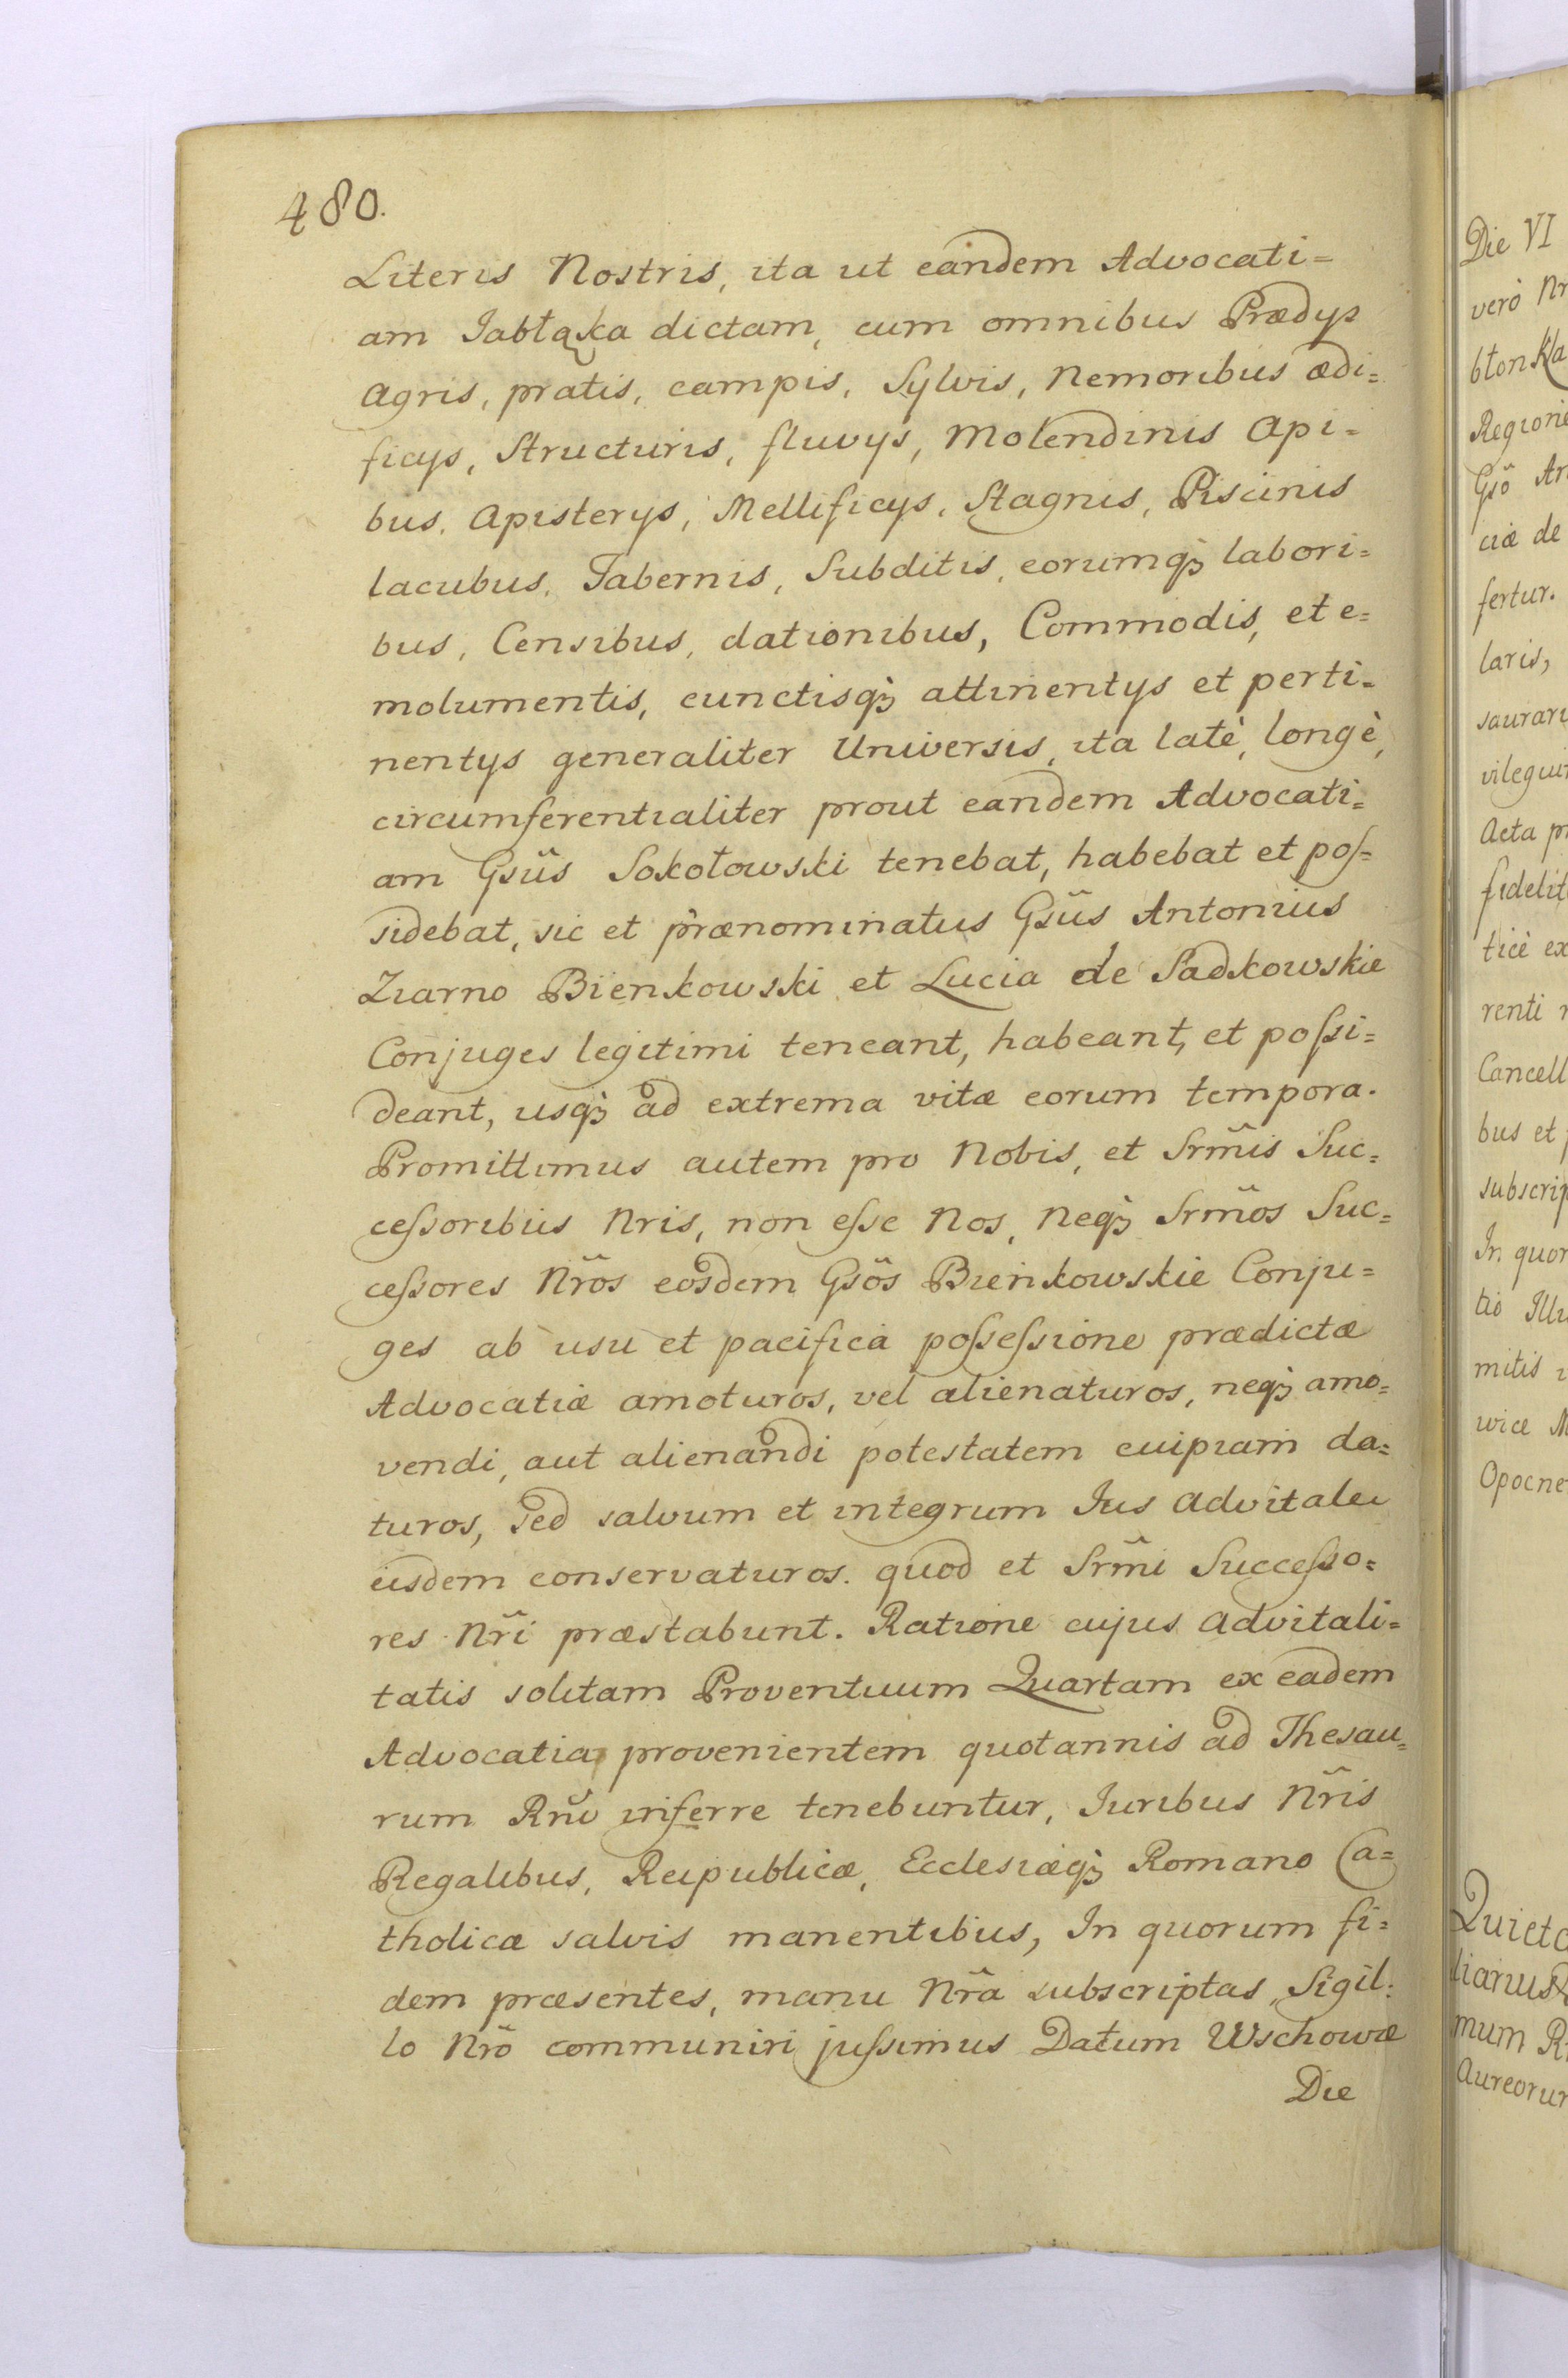 480.
Literis Nostris, ita ut eandem Advocati=
am Jabłąka dictam, cum omnibus Prædys
Agris, pratis, campis, Sylvis, Nemoribus ædi=
ficys, Structuris, fluvys, Molendinis Api=
bus. Apisterys, Mellificys, Stagnis, Piscinis
lacubus. Tabernis, Subditis, eorumqꝫ labori=
bus, Censibus, dationibus, Commodis, et e=
molumentis, cunctisqꝫ attinentys et perti=
nentys generaliter Universis, ita latè, longè,
circumferentialiter prout eandem Advocati=
am Gsũs Sokołowski tenebat, habebat et poſ=
sidebat, sic et prænominatus Gsũs Antonius
Ziarno Bienkowski et Lucia de Sadkowskie
Conjuges legitimi teneant, habeant, et poſsi=
deant, usqꝫ ad extrema vitæ eorum tempora.
Promittimus autem pro Nobis, et Srm̃is Suc=
ceſsoribus Nris, non eſse Nos, Neqꝫ Srm̃os Suc=
ceſsores Nr̃os eosdem Gsõs Bienkowskie Conju=
ges ab usu et pacifica poſseſsione prædictæ
Advocatiæ amoturos, vel alienaturos, neqꝫ amo=
vendi, aut alienandi potestatem cuipiam da=
turos, sed salvum et integrum Jus Advitale
eisdem conservaturos. quod et Srm̃i Succeſso=
res Nr̃i præstabunt. Ratione cujus Advitali=
tatis solitam Proventuum Quartam ex eadem
Advocatia provenientem quotannis ad Thesau=
rum Rñi inferre tenebuntur, Juribus Nr̃is
Regalibus, Reipublicæ, Ecclesiæqꝫ Romano Ca=
tholicæ salvis manentibus, In quorum fi=
dem præsentes, manu Nr̃a subscriptas, Sigil=
lo Nrõ communiri juſsimus Datum Wschowæ
Die
Die VI
verò Nr
błonka
Regione
Gsõ An
ciæ de
fertur.
laris,
saurari
vilegiu
Acta p
fidelit
ticè ex
renti
Cancell
bus et
subscrip
In quor
tio Illu
mitis
wice M
Opocne
Quieta
lianus
mum R
Aureorum